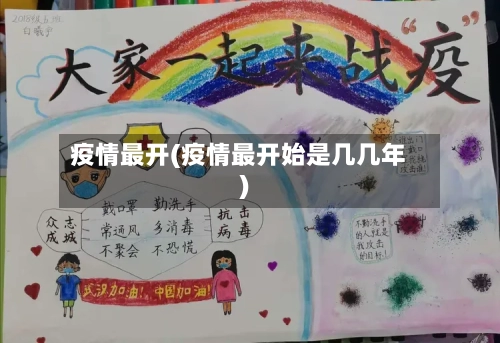 大家一起来战“疫”
疫情最开(疫情最开始是几几年
)
众志
成城
戴口罩 勤洗手
常通风 多消毒
不聚会 不恐慌
抗击
病毒
不勤洗手
的人就是
我攻击
的目标!
武汉加油! 中国加油!